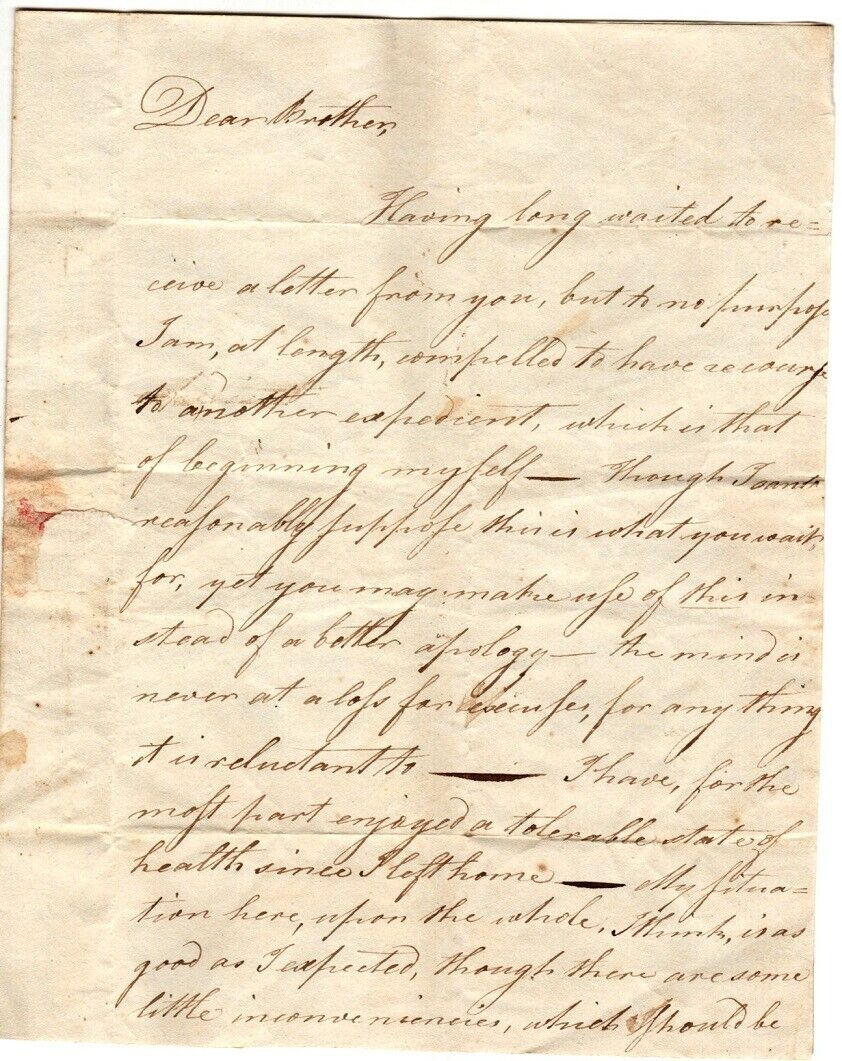 Dear Brother,
Having long waited to re=
ceive a letter from you, but to no purpose
I am, at length, compelled to have recourse
to another expedient, which is that
of beginning myself — though I cant
reasonably suppose this is what you wait
for, yet you may make use of this in-
stead of a better apology — the mind is
never at a loss for excuses, for any thing
it is reluctant to — I have, for the
most part enjoyed a tolerable state of
health since I left home — My situa-
tion here, upon the whole, I think, is as
good as I expected, though there are some
little inconveniencies, which should be